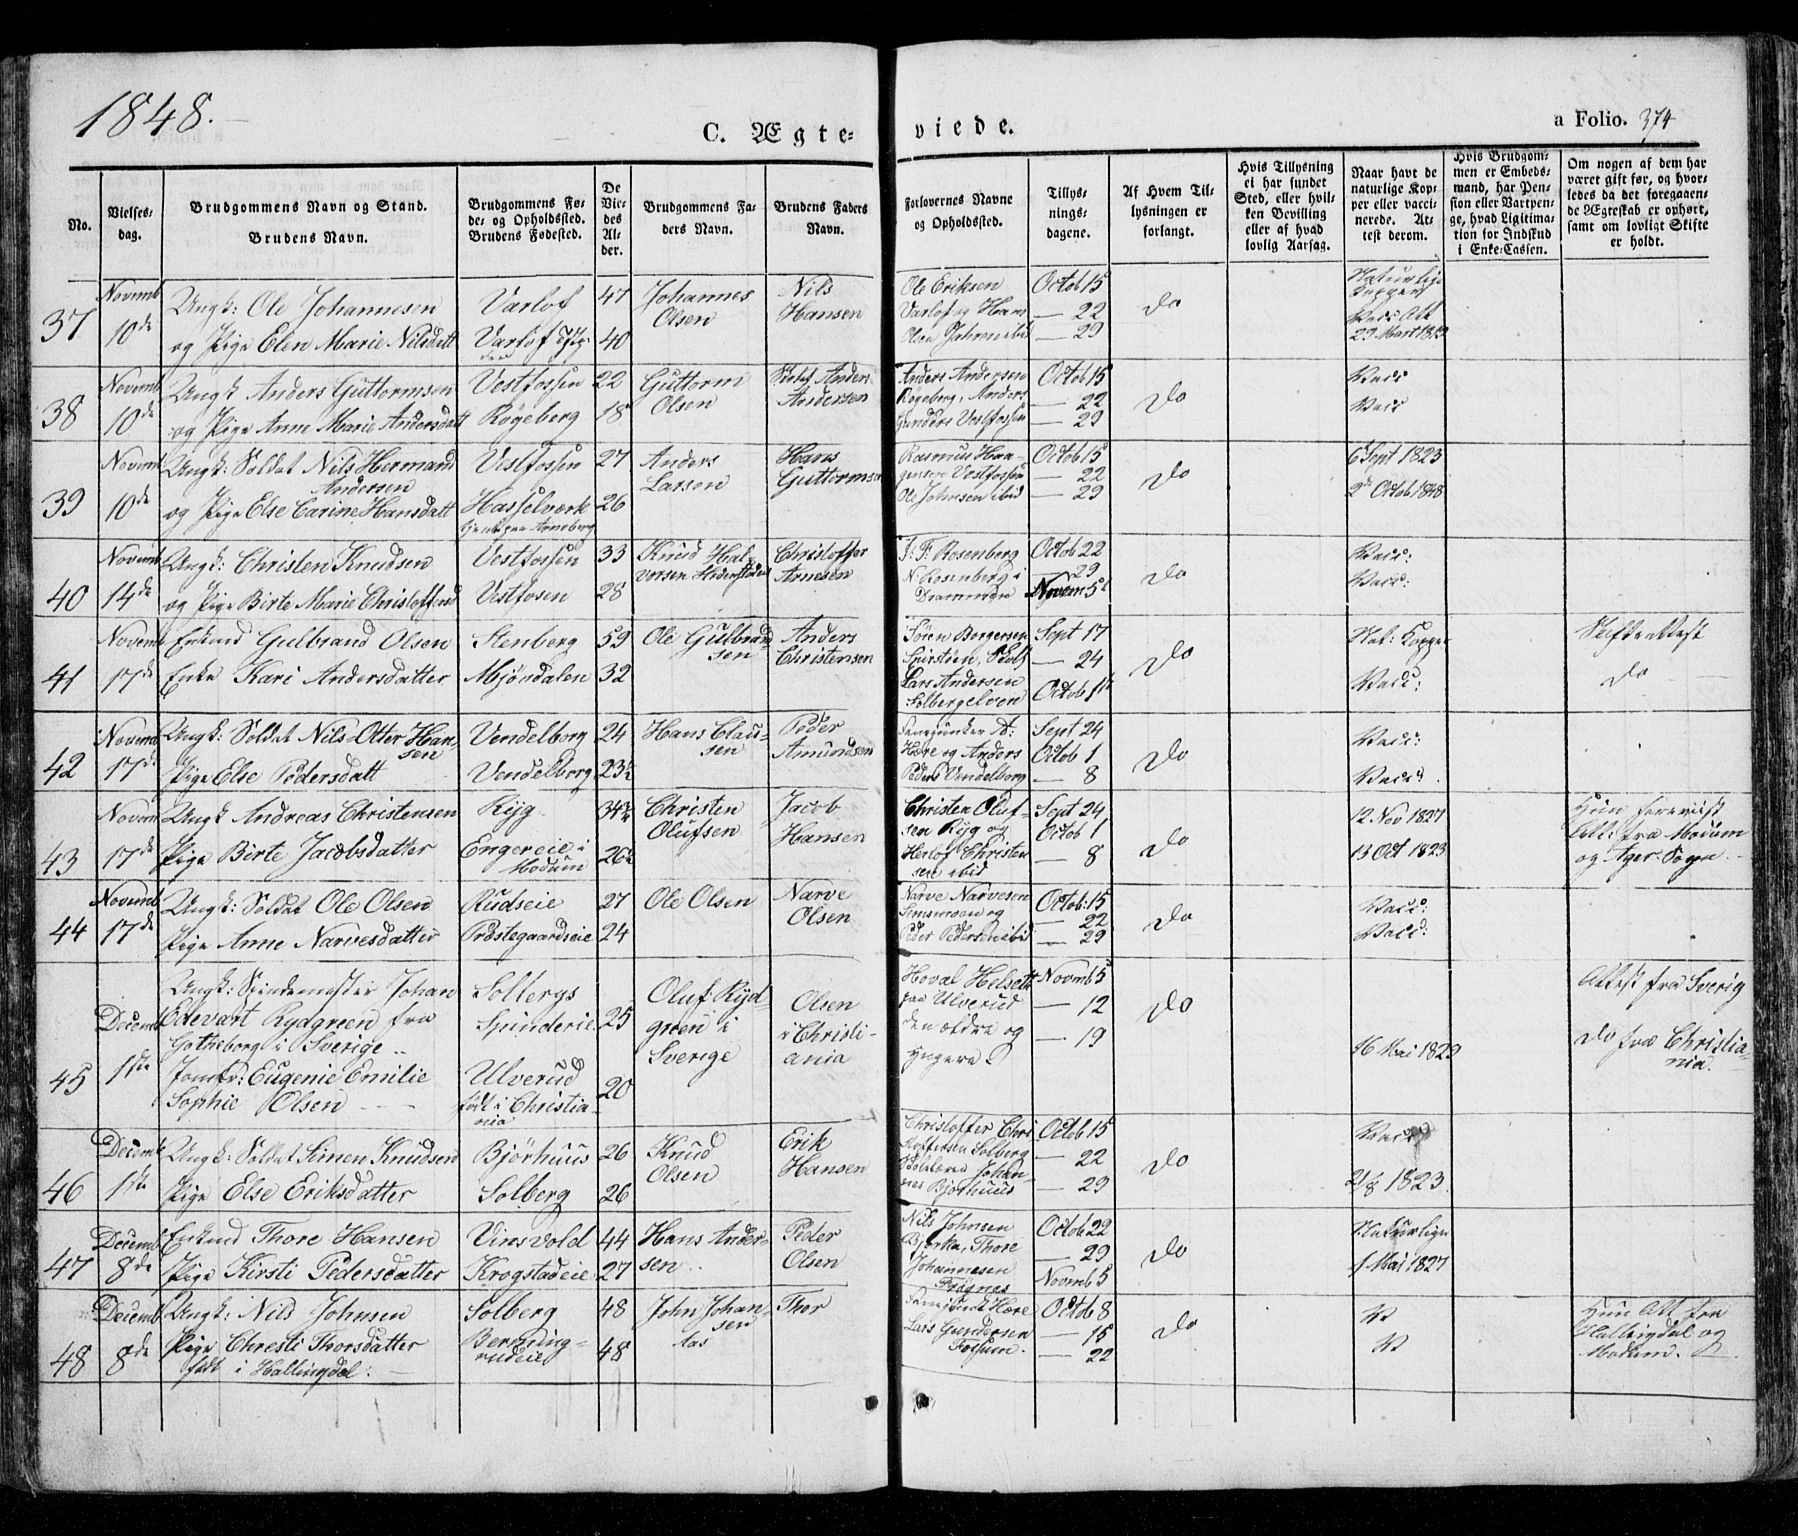 1848.
C. Ægte-
viede.
a Folio. 374
No.
Vielses-
dag.
Brudgommens Navn og Stand.
Brudens Navn.
Brudgommens Fø-
de- og Opholdssted.
Brudens Fødested.
De
Vie-
des
Al-
der.
Brudgommens Fa-
ders Navn.
Brudens Faders
Navn.
Forlovernes Navne
og Opholdssted.
Tillys-
nings-
dagene.
Af Hvem Til-
lysningen er
forlangt.
Hvis Tillysning
ei har fundet
Sted, eller hvil-
ken Bevilling
eller af hvad
lovlig Aarsag.
Naar havt de
naturlige Kop-
per eller vacci-
nerede. At-
test derom.
Hvis Brudgom-
men er Embeds-
mand, har Pen-
sion eller Vartpen-
ge, hvad Ligitima-
tion for Indskud
i Enke-Cassen.
Om nogen af dem har
været gift før, og hvor-
ledes da det foregaaen-
de Ægteskab er ophørt,
samt om lovligt Skifte
er holdt.
37
Novemb
10de
Ungk: Ole Johannesen
og Pige Elen Marie Nilsdatt
Varlof
Varlof
47
40
Johannes
Olsen
Nils
Hansen
Ole Eriksen
Varlof og Hans
Olsen ibid
Octob 15
— 22
— 29
Do
Naturlige
Kopper
Vacs Att
29 Mart 1819
38
Novemb
10de
Ungk Anders Guttormsen
og Pige Anne Marie Andersdatt
Vestfossen
Røgeberg
22
18
Guttorm
Olsen
Anders
Andersen
Anders Andersen
Røgeberg, Anders
Gunders Vestfossen
Octob 15
— 22
— 29
Do
Vacs
Vacs
39
Novemb
10de
Ungk: Soldat Nils Hermand
Andersen
og Pige Else Carine Hansdatt
Vestfossen
Hasselværk
tjen paa Arneberg
27
26
Anders
Larsen
Hans
Guttormsen
Rasmus Haa-
gensen Vestfossen
Ole Johnsen ibid
Octob 15
— 22
— 29
Do
6 Sept 1823
2de Octob 1848
40
Novemb
14de
Ungk: Christen Knudsen
og Pige Birte Marie Christoffersd
Vestfossen
Vestfosen
33
28
Knud Hal-
vorsen
Christoffer
Arnesen
J: F: Rosenberg
N. Rosenberg i
Drammen
Octob 22
— 29
Novem 5
Do
Vacc:
Vacc:
41
Novemb
17de
Enkmd Gulbrand Olsen
Enke Kari Andersdatter
Stenberg
Mjøndalen
59
32
Ole Gulbrand
sen
Anders
Christensen
Søren Borgersen
Lars Andersen
Solbergelven
Sept 17
— 24
Octob 1
Do
Nat: Kopper
Vacc:
Skifteattest
Do
42
Novemb
17de
Ungk: Soldat Nils Otter Han-
sen
Pige Else Pedersdatt
Vendelborg
Vendelborg
24
23½
Hans Clau-
sen
Peder
Amundsen
Hære og Anders
Peders Vendelborg
Sept 24
Octob 1
— 8
Do
Vacc:
Vacc:
43
Novemb
17de
Ungk Andreas Christensen
Pige Birte Jacobsdatter
Ryg
Engereie i
Modum
34½
26½
Christen
Olufsen
Jacob
Hansen
Christen Oluf-
sen Ryg og
Herlof Christen
sen ibid
Sept 24
Octob 1
— 8
Do
12 Nov 1827
13 Oct 1823
Hun
att: fra Modum
og Ager Sogn.
44
Novemb
17de
Ungk: Soldat Ole Olsen
Pige Anne Narvesdatter
Rudseie
Præstegaardseie
27
24
Ole Olsen
Narve
Olsen
Narve Narvesen
og
Peder Pedersen ibid
Octob: 15
— 22
— 29
Do
Vacc:
Vacc:
45
Decemb
1ste
Ungk: Spindemester Johan
Edevart Rydgreen fra
Gotheborg i Sverige
Jomfr: Eugenie Emilie
Sophie Olsen
Solbergs
Spinderie
Ulverud
født i Christia-
nia
25
20
Oluf Ryd-
green i
Sverige
Olsen
i Christi-
ania
Hoval Helseth
paa Ulverud
den ældre og
yngere
Novmb 5
— 12
— 19
Do
16 Mai 1829
Attest fra Sverig
Do fra Christia-
nia.
46
Decemb
1ste
Ungk: Soldat Simen Knudsen
Pige Else Eriksdatter
Bjørhuus
Solberg
26
26
Knud
Olsen
Erik
Hansen
Christoffer Chri
stoffersen Solberg
Skolelærer Johan-
nes Bjørhuus
Octob 15
— 22
— 29
Do
Vacc
21/8 1823.
47
Decemb
8de
Enkmd Thore Hansen
Pige Kirsti Pedersdatter
Vinsvold
Krogstadeie
44
27
Hans Ander-
sen
Peder
Olsen
Nils Johnsen
Bjerka, Thore
Johannesen
Octob 22
— 29
Novmb 5
Do
Naturlige
1 Mai 1827
48
Decemb
8de
Ungk: Nils Johnsen
Pige Chresti Thorsdatter
født i Hallingdal:
Solberg
Berg
rudeie
48
48
John Johan-
sen
Thor
Hære
Lars Gundersen
Fossum.
Octob 8
— 15
— 22
Do
V
V
Hun Att fra
Hallingdal og
Modum.